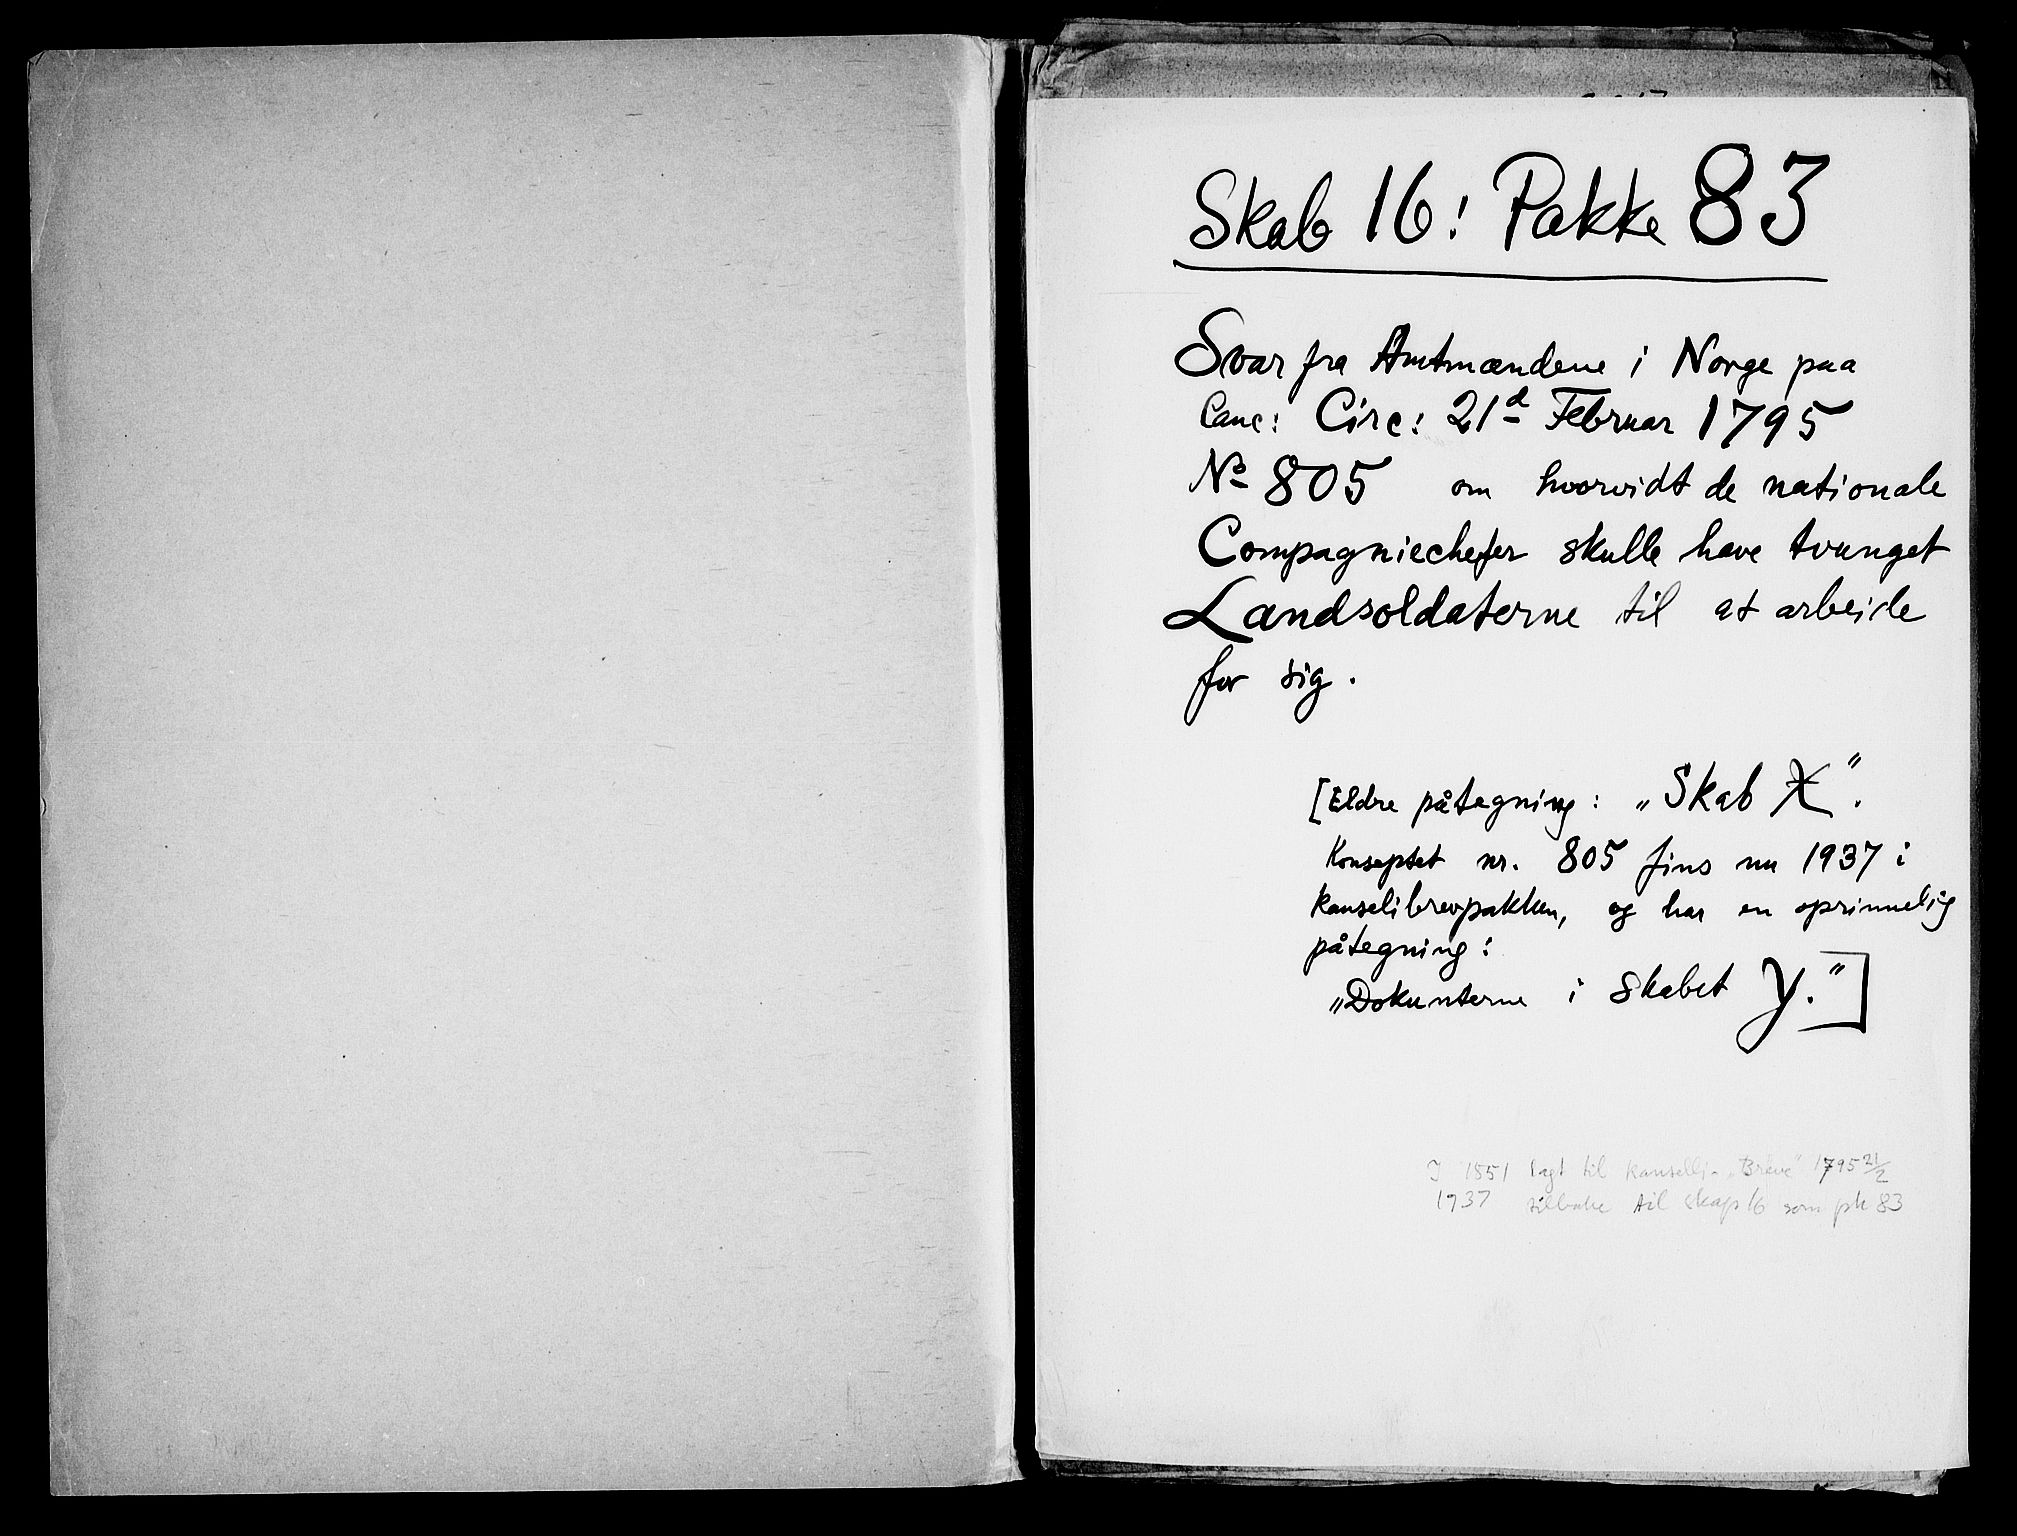 Skab 16: Pakke 83
Svar fra Amtmændene i Norge paa
Canc: Circ: 21d Februar 1795
No 805 om hvorvidt de nationale
Compagniechefer skulle have tvunget
Landsoldaterne til at arbeide
for sig.
[Eldre påtegning: „Skab X".
Konseptet nr. 805 fins nu 1937 i
kanselibrevpakken, og har en oprinnelig
påtegning:
„Dokumterne i Skabet Y."]
I 1551 lagt til Kanselli- „Breve" 1795 21/2
1937 tilbake til skap 16 som pk 83